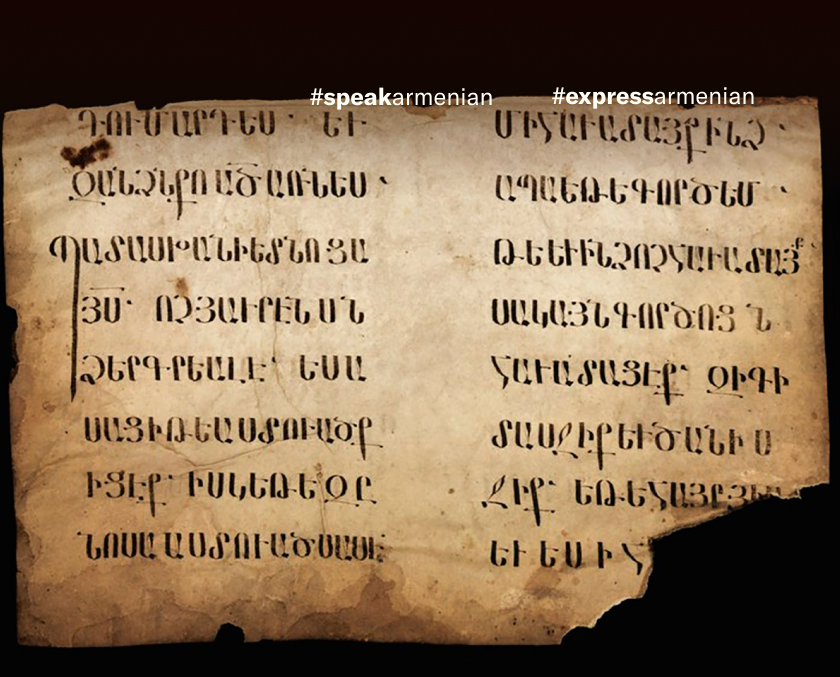 #speakarmenian #expressarmenian
ԴՈՒՄԱՐԴԵՍ· ԵՒ
ԶԱՆՁՆՔՈԱԾԱՌՆԵՍ·
ՊԱՏԱՍԽԱՆԻԵՏՆՈՑԱ
ՅՍ· ՈՉՅԱՒՐԷՆՍՆ
ՁԵՐԳՐԵԱԼԷ· ԵՍԱ
ՍԱՑԻԹԵԱՍՏՈՒԱԾՔ
ԻՑԷՔ· ԻՍԿԵԹԵԶԸ
ՆՈՍԱԱՍՏՈՒԱԾՍ
ՄԻՀԱՒԱՏԱՅՔԻՆՁ·
ԱՊԱԵԹԵԳՈՐԾԵՄ·
ԹԵԵՒԻՆՁՈՉՀԱՒԱՏԱՅՔ
ՍԱԿԱՅՆԳՈՐԾՈՑՆ
ՀԱՒԱՏԱՑԷՔ· ԶԻԳԻ
ՏԱՍՋԻՔԵՒԾԱՆԻՍ
ՋԻՔ· ԵԹԵՀԱՅՐ
ԵՒ ԵՍ Ի Հ